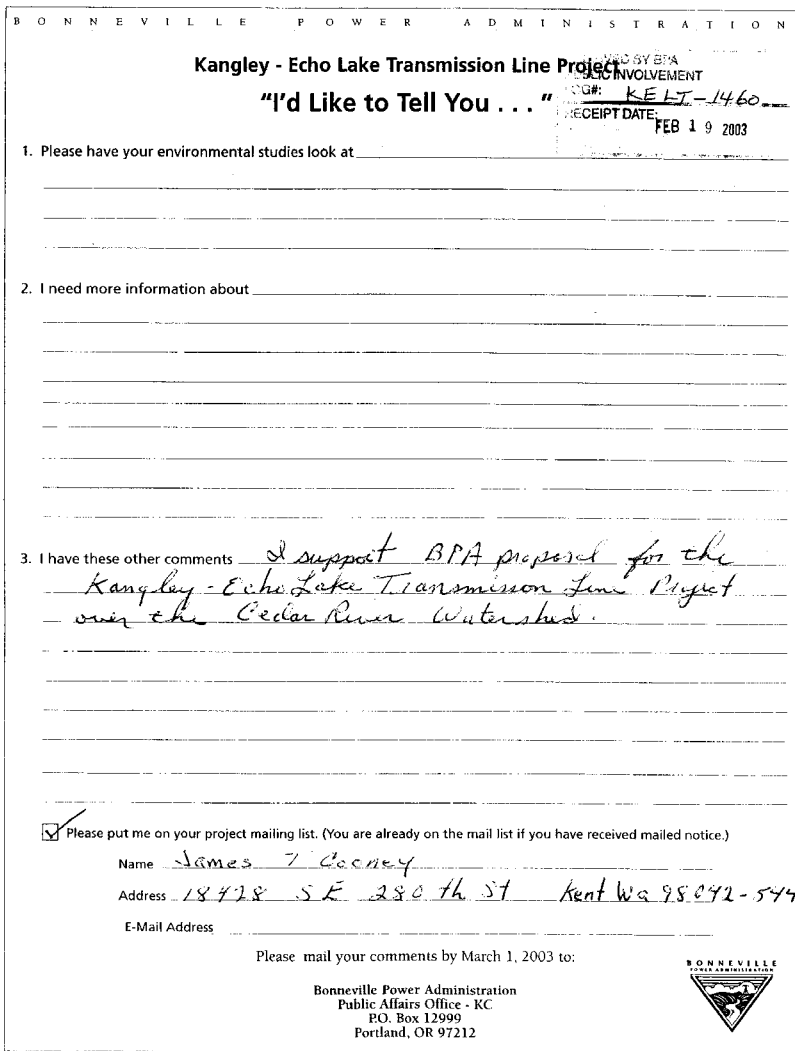 BONNEVILLE POWER ADMINISTRATION
Kangley - Echo Lake Transmission Line Project
"I'd Like to Tell You . . . "
BY BPA
INVOLVEMENT
G#: KELT-1460
ECEIPT DATE:
FEB 19 2003
1. Please have your environmental studies look at
2. I need more information about
3. I have these other comments I support BPA proposal for the
Kangley-Echo Lake Transmisson Line Project
over the Cedar River Watershed.
Please put me on your project mailing list. (You are already on the mail list if you have received mailed notice.)
Name James T Cooney
Address 18428 SE 280th St Kent Wa 98042-544
E-Mail Address
Please mail your comments by March 1, 2003 to:
Bonneville Power Administration
Public Affairs Office - KC
P.O. Box 12999
Portland, OR 97212
BONNEVILLE
POWER ADMINISTRATION